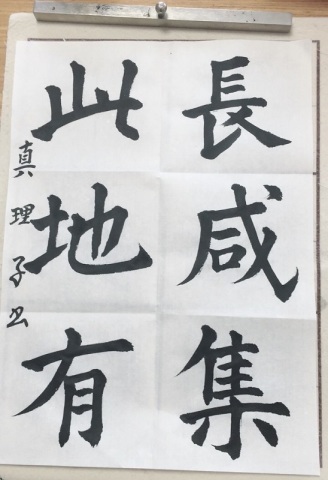 長咸集
此地有
真理子书